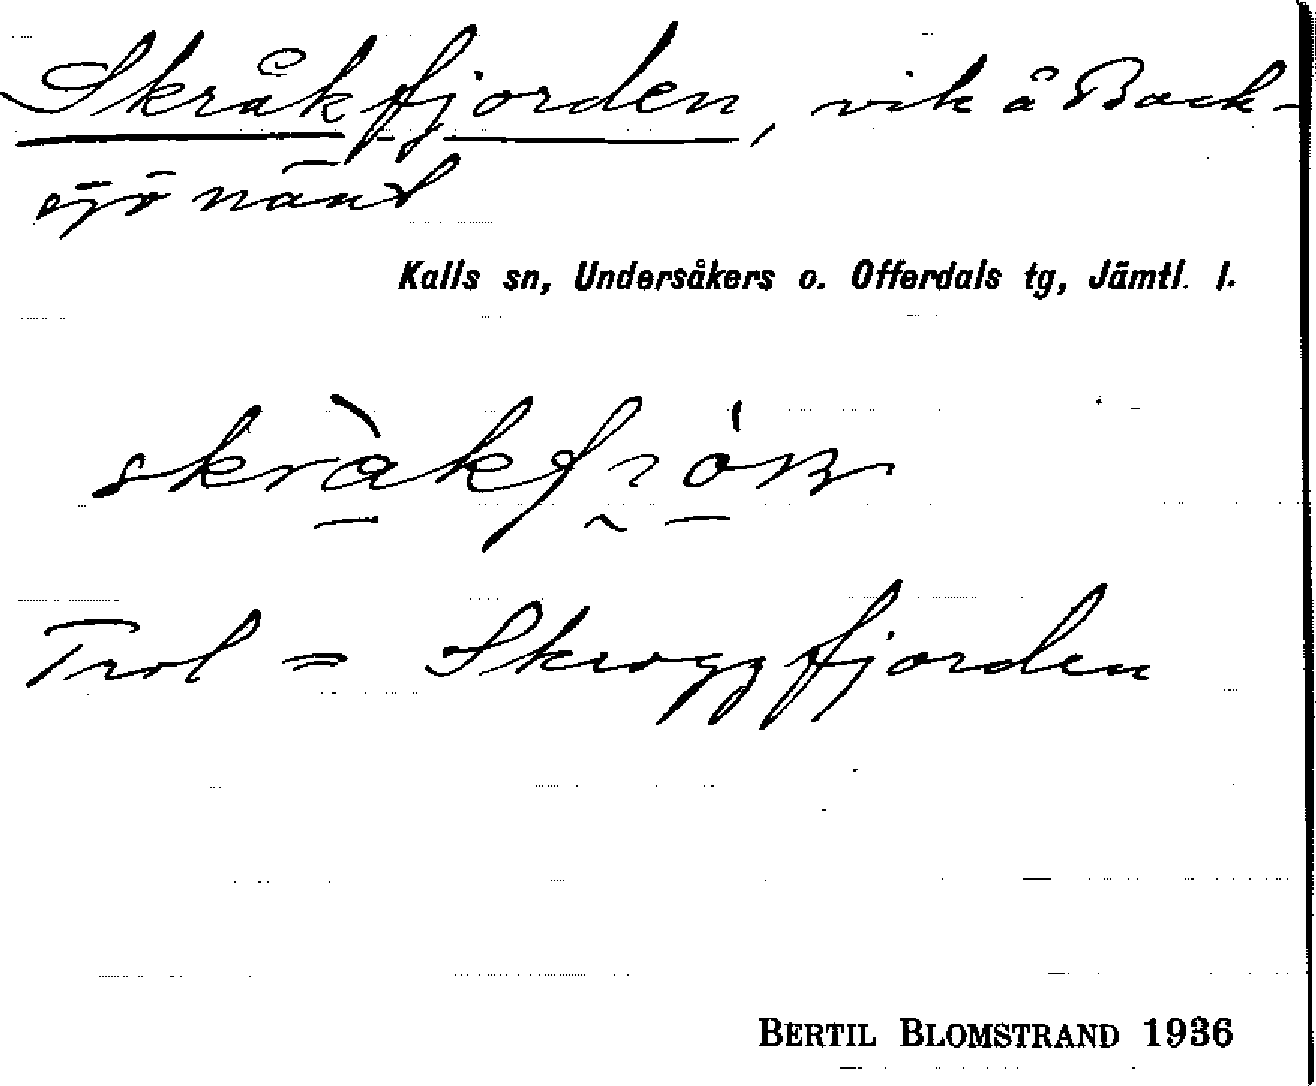 Skråkfjorden, vik å Back-
sjönäset
Kalls sn, Undersåkers o. Offerdals tg, Jämtl. l.
Trol = Skroggfjorden
BERTIL BLOMSTRAND 1936